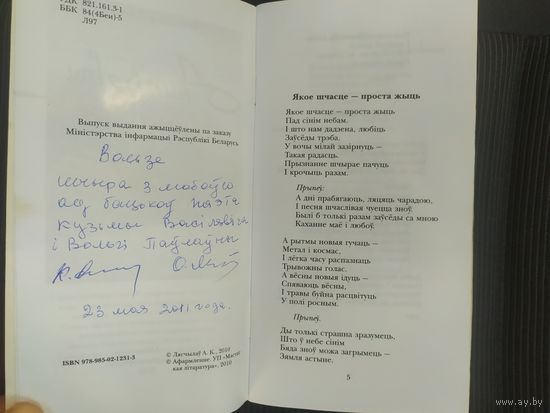 УДК 821.161.3-1
ББК 84(4Беи)-5
Л97
Выпуск выдання ажыццёўлены па заказу
Міністэрства інфармацыі Рэспублікі Беларусь
Вользе
шчыра з любоўю
ад бацькоў паэта
Кузьмы Васілевіча
і Вольгі Паўлаўны
23 мая 2011 года.
© Лягчылаў А. К., 2010
© Афармленне. УП «Мастац-
кая літаратура», 2010
ISBN 978-985-02-1231-3
Якое шчасце — проста жыць
Якое шчасце — проста жыць
Пад сінім небам.
І што нам дадзена, любіць
Заўсёды трэба.
У вочы мілай зазірнуць —
Такая радасць.
Прызнанне шчырае пачуць
І крочыць разам.
Прыпеў:
А дні прабягаюць, ляцяць чарадою,
І песня шчаслівая чуецца зноў.
Былі б толькі разам заўсёды са мною
Каханне маё і любоў.
А рытмы новыя гучаць —
Метал і космас,
І лёгка часу распазнаць
Трывожны голас.
А вёсны новыя ідуць —
Спяваюць вёсны,
І травы буйна расцвітуць
У полі росным.
Прыпеў.
Ды толькі страшна зразумець,
Што ў небе сінім
Бяда зноў можа загрымець —
Зямля астыне.
5
www.ay.by